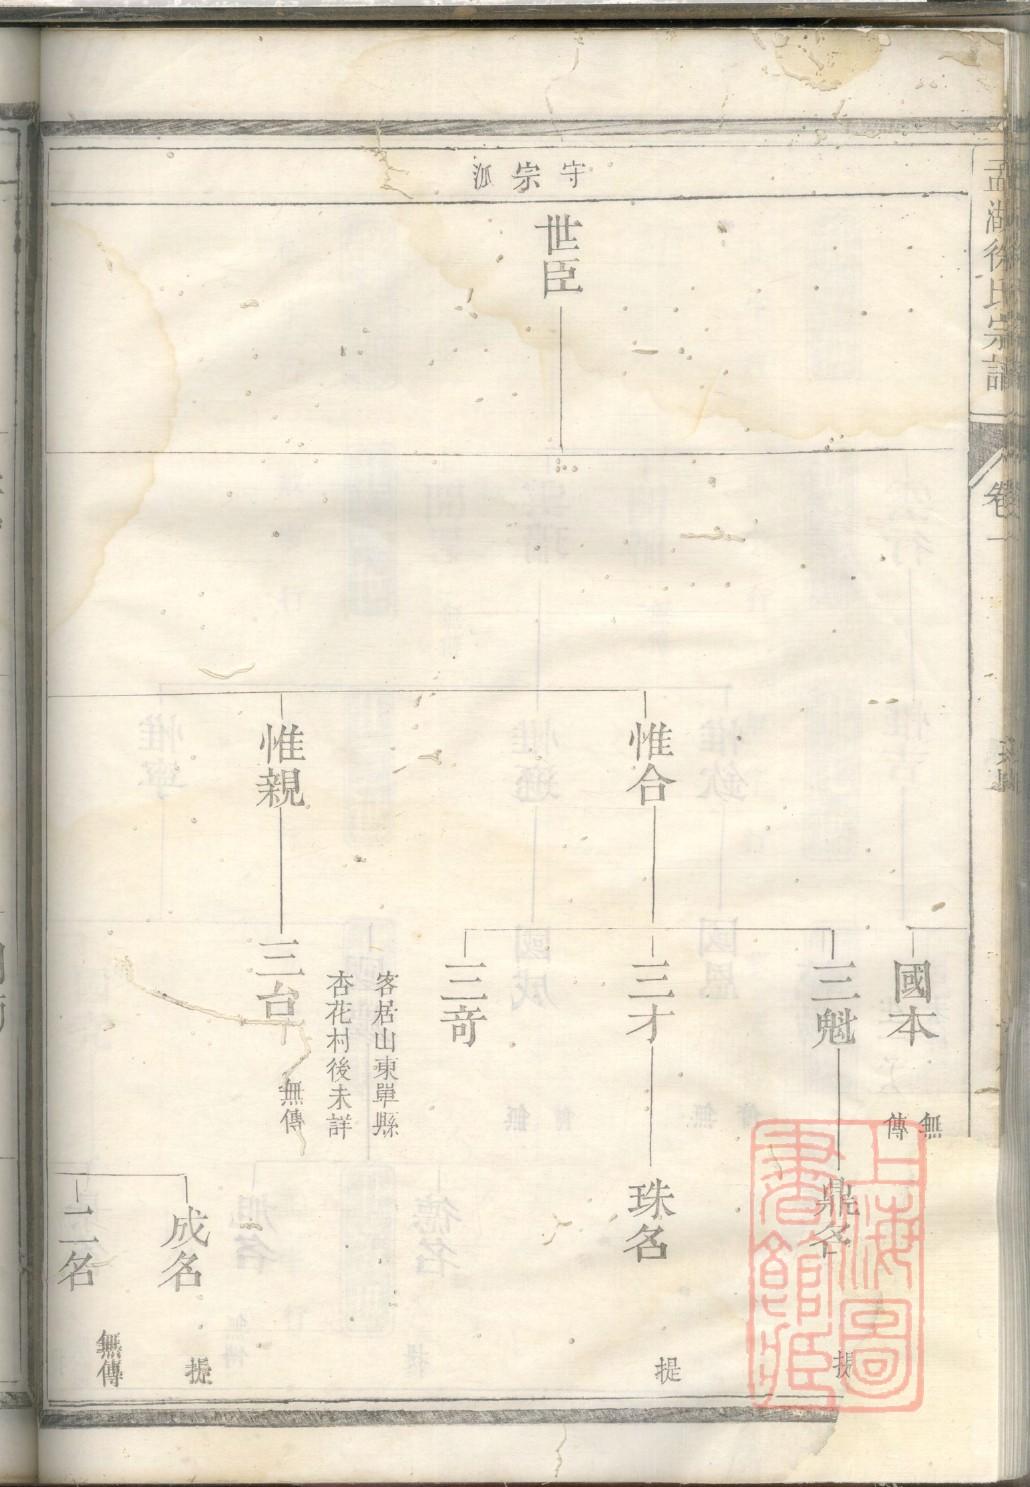 孟湖徐氏宗譜
卷一
守宗派
世臣
惟合
惟親
國本
無傳
三魁
三才
三奇
客居山東單縣
杏花村後未詳
三台
無傳
鼎名
提
珠名
提
成名
振
二名
無傳
上海圖
書館藏